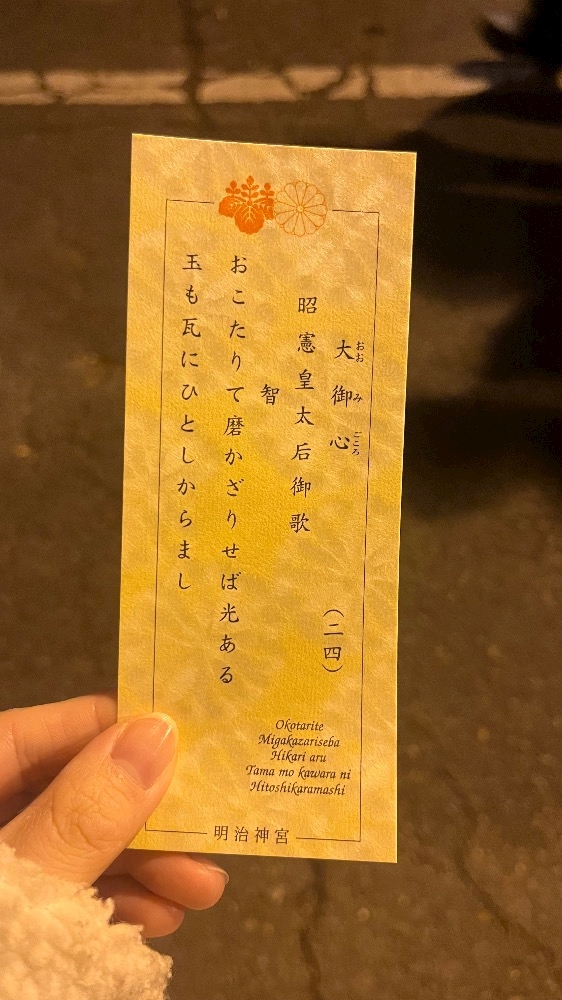 大御心
おおみごころ
（二四）
昭憲皇太后御歌
智
おこたりて磨かざりせば光ある
玉も瓦にひとしからまし
Okotarite
Migakazariseba
Hikari aru
Tama mo kawara ni
Hitoshikaramashi
明治神宮